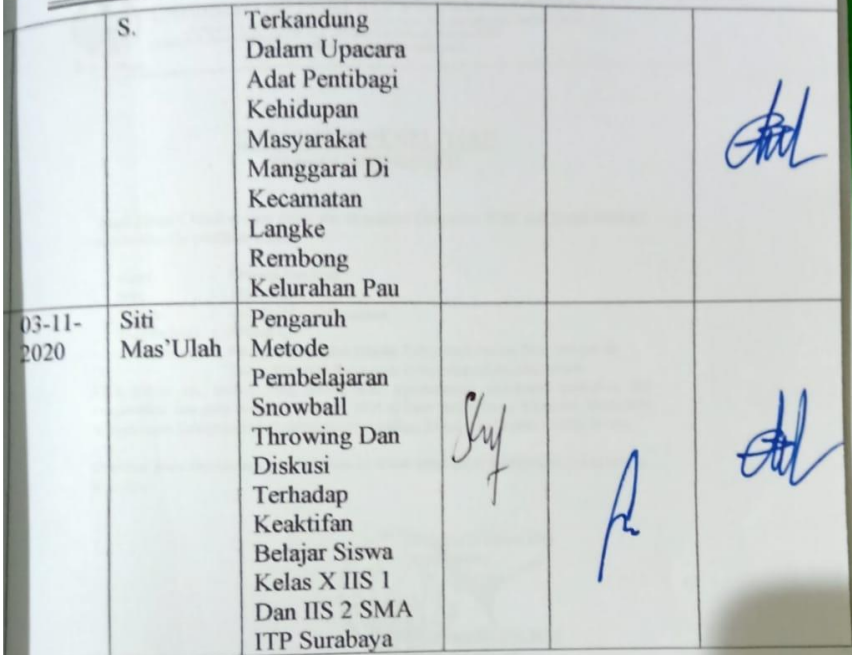 S.
Terkandung
Dalam Upacara
Adat Pentibagi
Kehidupan
Masyarakat
Manggarai Di
Kecamatan
Langke
Rembong
Kelurahan Pau
03-11-
2020
Siti
Mas'Ulah
Pengaruh
Metode
Pembelajaran
Snowball
Throwing Dan
Diskusi
Terhadap
Keaktifan
Belajar Siswa
Kelas X IIS 1
Dan IIS 2 SMA
ITP Surabaya